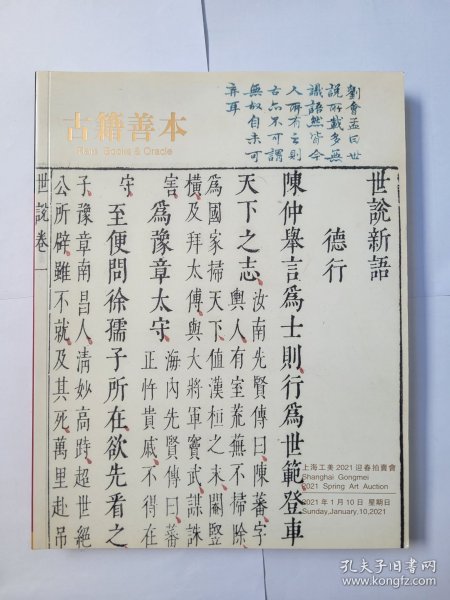 古籍善本
Rare Books & Oracle
劉會孟曰世
說所載多無
識語然皆令
人所有之則
古亦不可謂
無故自未可
棄耳
世說新語
德行
陳仲舉言爲士則行爲世範登車
天下之志
汝南先賢傳曰陳蕃字
輿人有室荒蕪不掃除
爲國家掃天下值漢桓之末閹豎
橫及拜太傅與大將軍竇武謀誅
害
爲豫章太守
海內先賢傳曰蕃
正忤貴戚不得在
守
至便問徐孺子所在欲先看之
子豫章南昌人清妙高跱超世絕
公所辟雖不就及其死萬里赴弔
世說卷一
上海工美2021迎春拍賣會
Shanghai Gongmei
2021 Spring Art Auction
2021年1月10日 星期日
Sunday,January,10,2021
孔夫子旧书网
www.kongfz.com